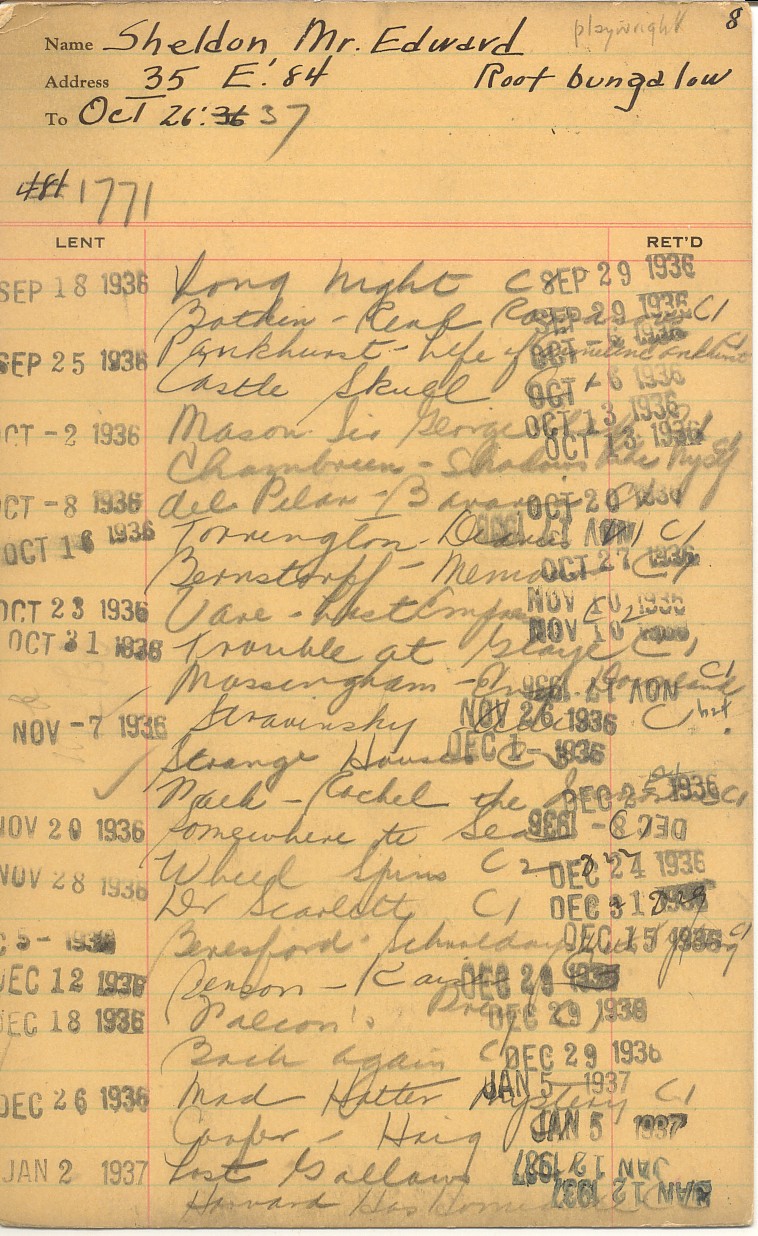 playwright 8
Name Sheldon Mr. Edward
Address 35 E. 84 Roof bungalow
To Oct 26: 36 37
1771
LENT RET'D
SEP 18 1936 Long Night C SEP 29 1936
Bothen - Real SEP 29 1936 C1
SEP 25 1936 Pankhurst - Life of Emmeline Pankhurst C1 OCT - 6 1936
Castle Skull OCT - 6 1936
OCT - 2 1936 Mason Sir George OCT 13 1936 C1
Chambrun - Shadows Like Myself C1 OCT 13 1936
OCT - 8 1936 del Pilar - Bavaria OCT 20 1936
OCT 16 1936 Torrington - Diaries VI C1 NOV 17 1936
Bernstorff - Memoirs OCT 27 1936 C1
OCT 23 1936 Vare - Last Empress NOV 10 1936 C2
OCT 31 1936 Trouble at Glaye C1 NOV 10 1936
Massingham - C1 NOV 17 1936
NOV - 7 1936 Stravinsky NOV 26 1936 C1
Strange Houses C DEC 1 - 1936
Nach - Rachel the DEC 1936 C1
NOV 20 1936 Somewhere to Sea C1 DEC 8 - 1936
NOV 28 1936 Wheel Spins C2 DEC 24 1936
Dr Scarlett C1 DEC 31
DEC 5 - 1936 Beresford - Schoolday DEC 15 1936 C1
DEC 12 1936 Benson - Kaiser DEC 29 1936
DEC 18 1936 Falcon's Prey C1 DEC 29 1936
Back Again C DEC 29 1936
DEC 26 1936 Mad Hatter Mystery C1 JAN 5 1937
Cooper - Haig JAN 5 1937
JAN 2 1937 Lost Gallows JAN 12 1937
Harvard Has Homicide JAN 12 1937